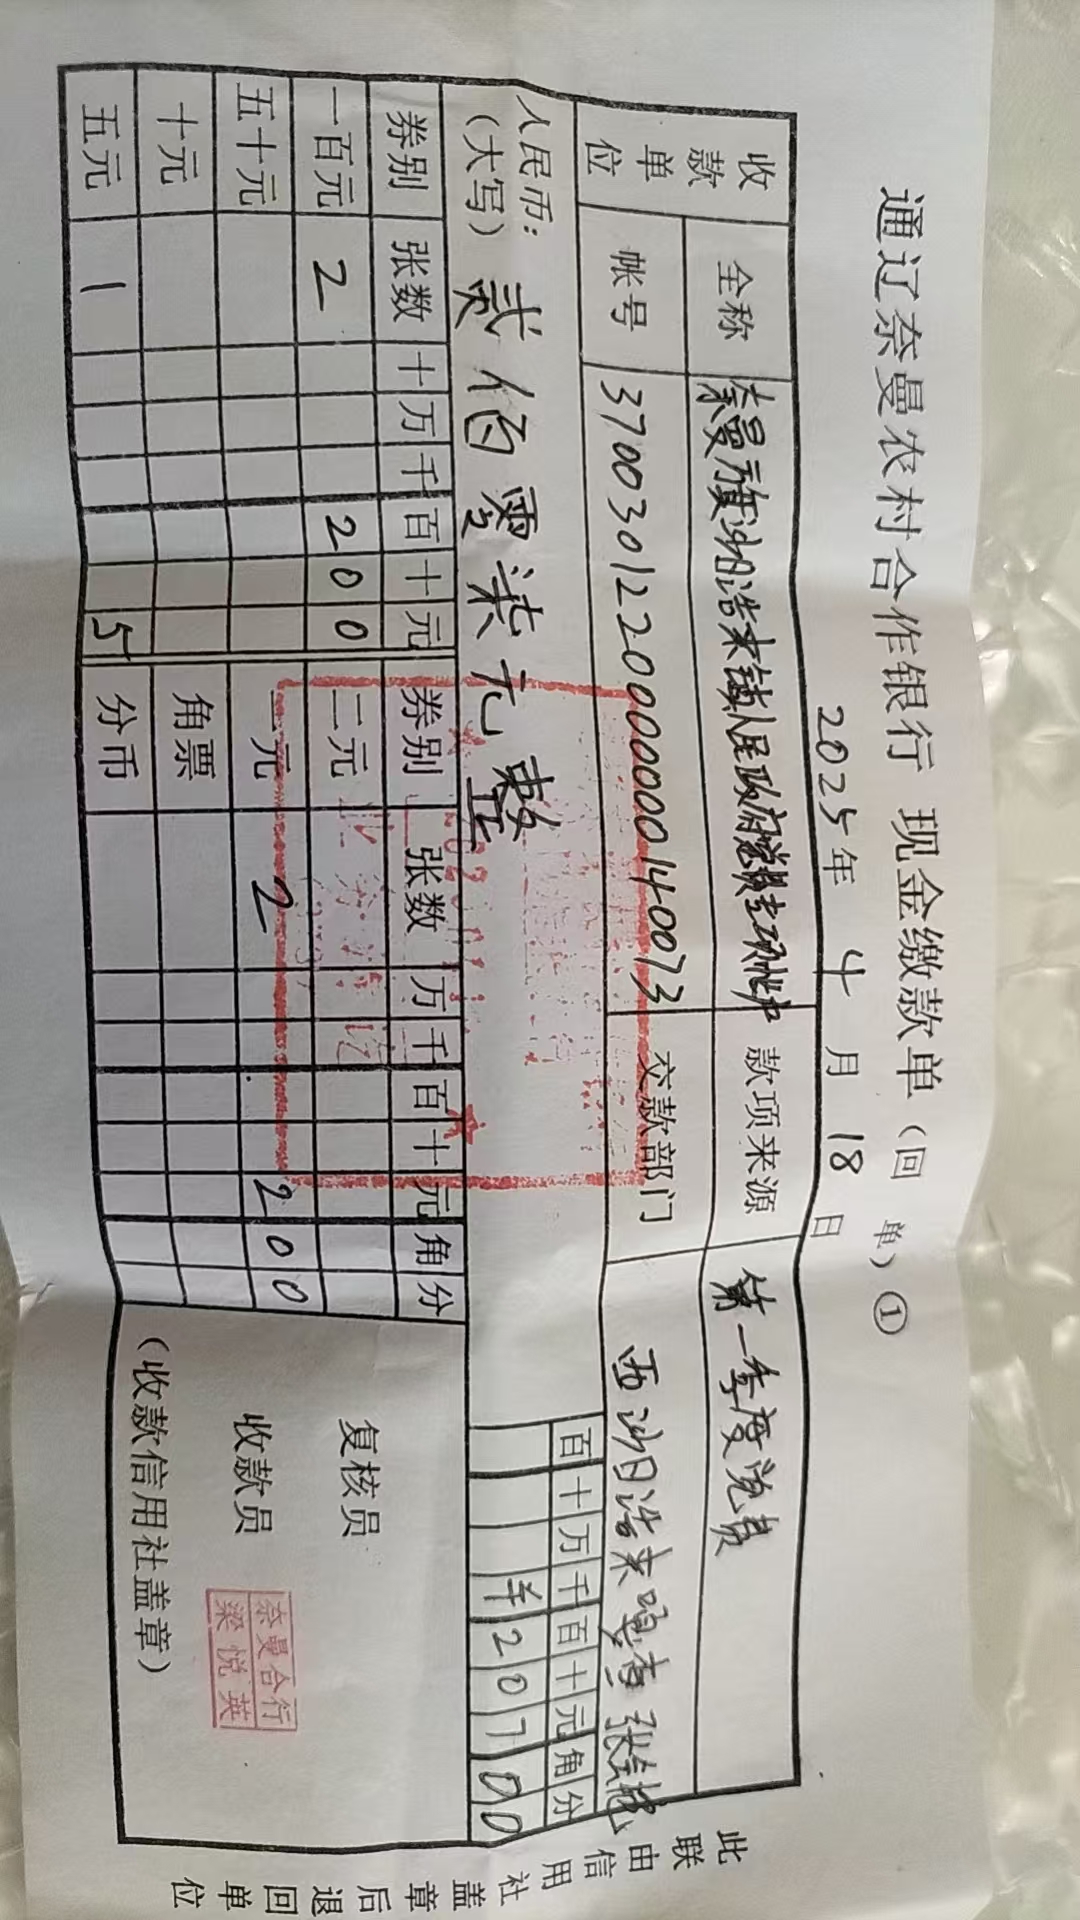 通辽奈曼农村合作银行 现金缴款单（回 单）①
2025年 4 月 18 日
收款单位 全称 奈曼旗沙日浩来镇人民政府党费专项帐户 款项来源 第一季度党费
帐号 3700301220000000140073 交款部门 西沙日浩来嘎查 张
人民币：（大写） 贰佰零柒元整 百十万千百十元角分
¥20700
券别 张数 十万千百十元 券别 张数 万千百十元角分
一百元 2 200 二元
五十元 一元 2 200
十元 角票
五元 1 5 分币
复核员
收款员
奈曼合行
梁悦英
（收款信用社盖章）
此联由信用社盖章后退回单位